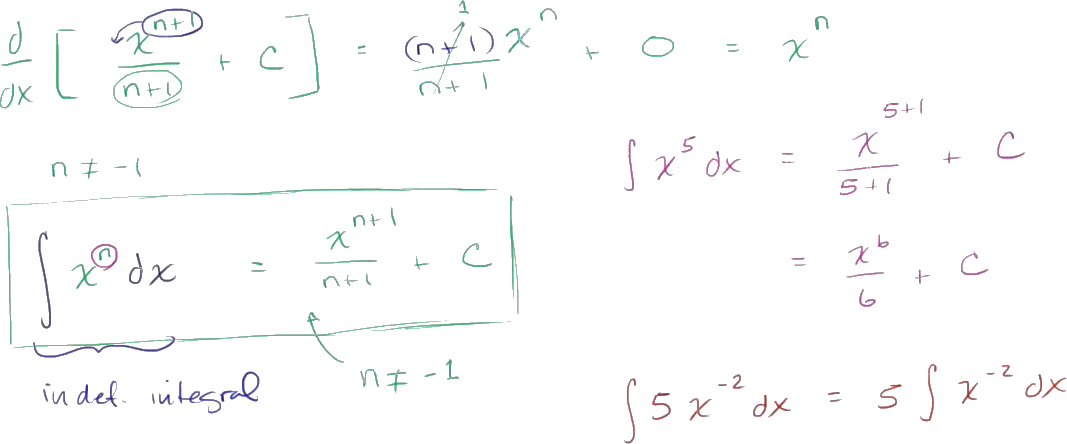 d/dx [ x^(n+1)/(n+1) + C ] = (n+1)x^n/(n+1) + 0 = x^n
1
n ≠ -1
∫ x^n dx = x^(n+1)/(n+1) + C
n ≠ -1
indef. integral
∫ x^5 dx = x^(5+1)/(5+1) + C
= x^6/6 + C
∫ 5 x^-2 dx = 5 ∫ x^-2 dx